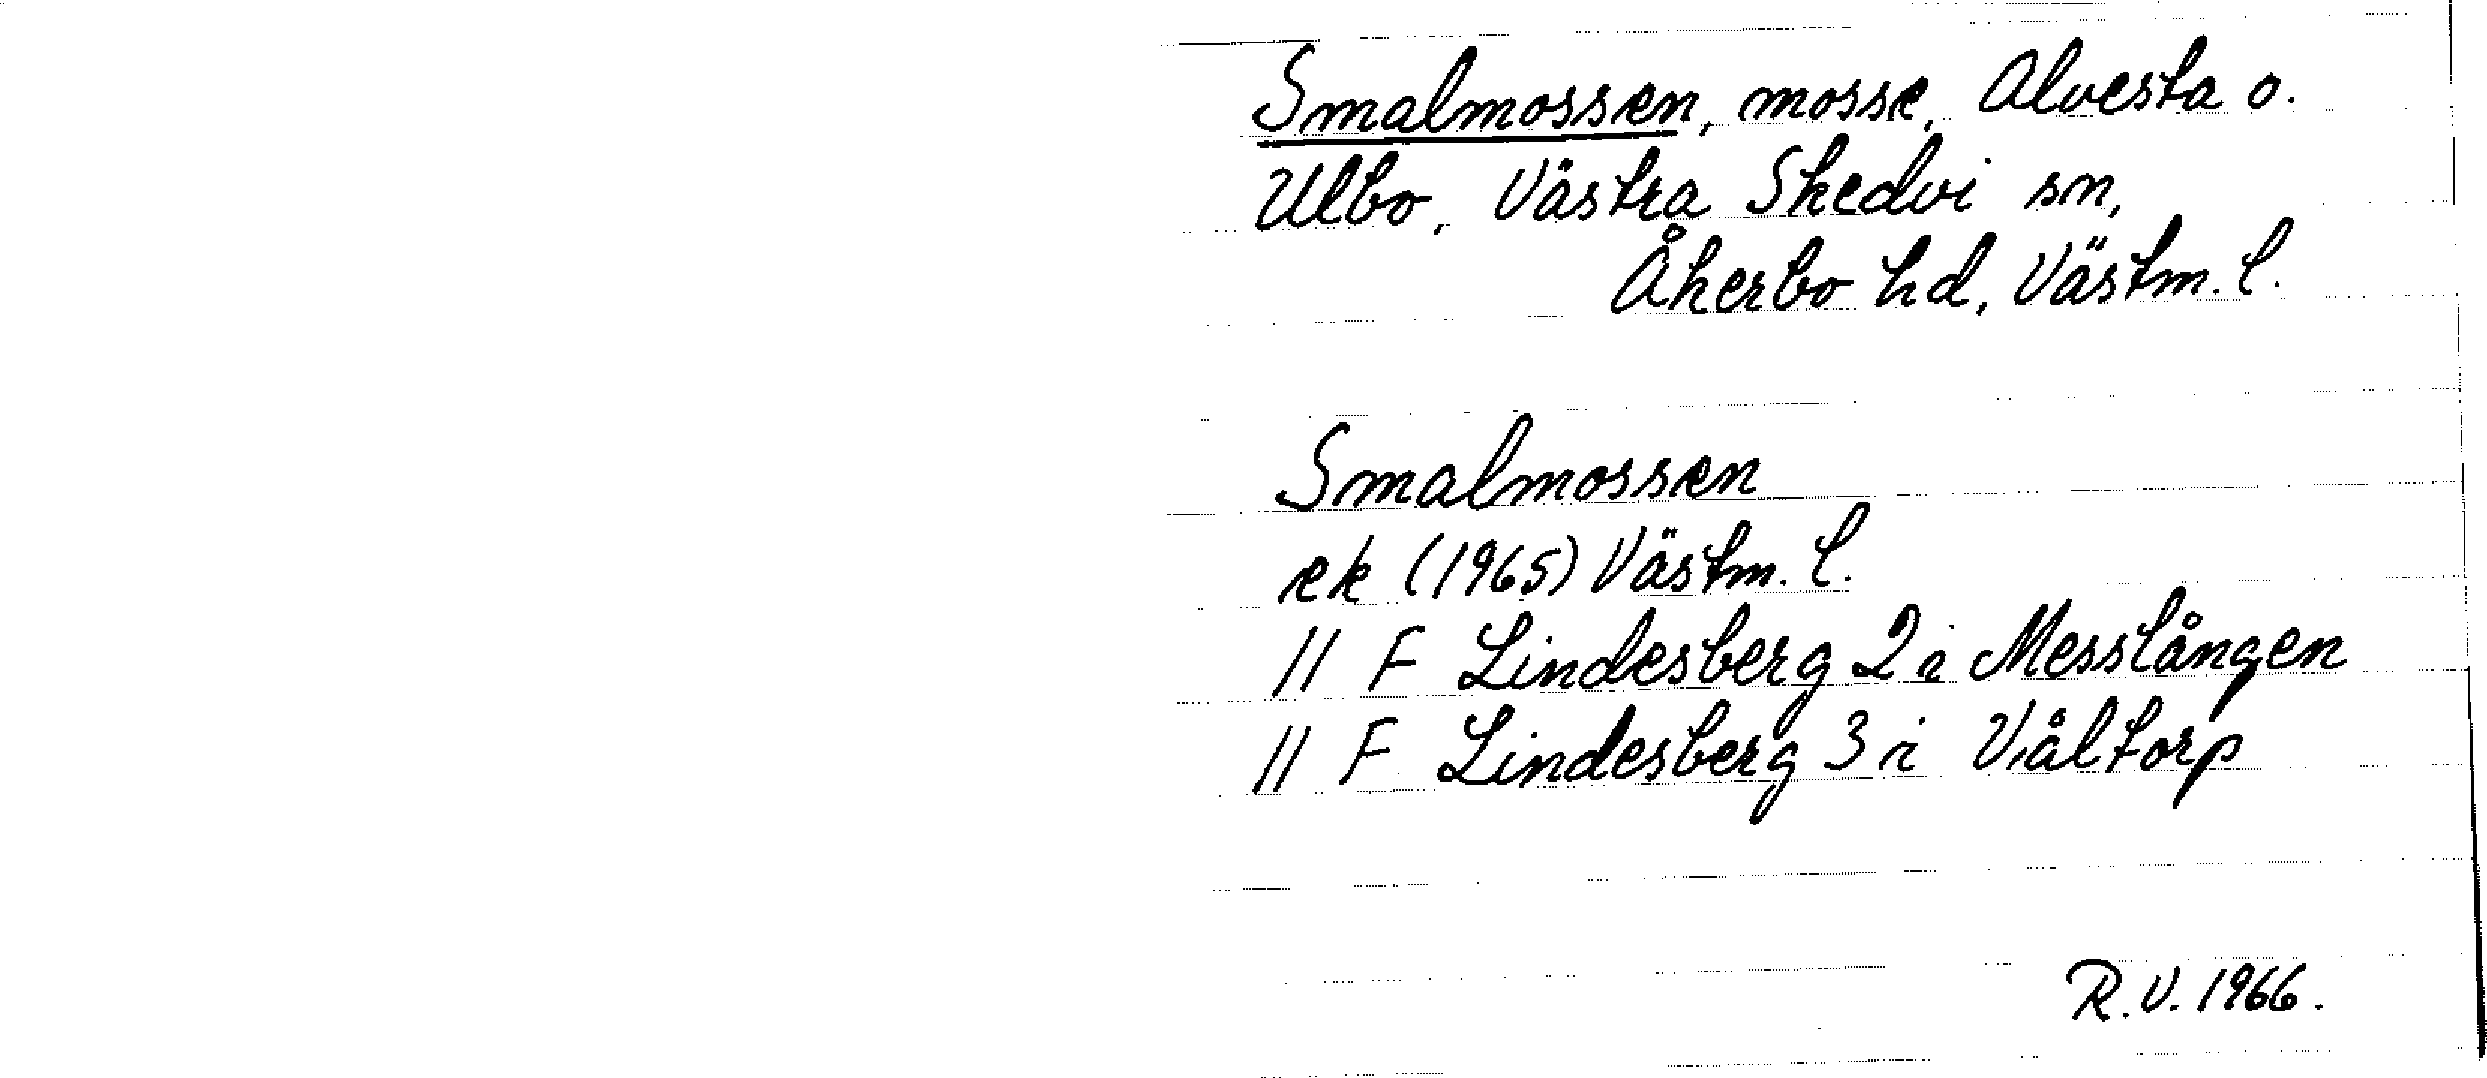 Smalmossen, mosse, Alvesta o.
Ulbo, Västra Skedvi sn,
Åkerbo hd, Västm. l.
Smalmossen
ek (1965) Västm. l.
" F Lindesberg 2 i Messlången
" F Lindesberg 3 i Våltorp
R.V. 1966.